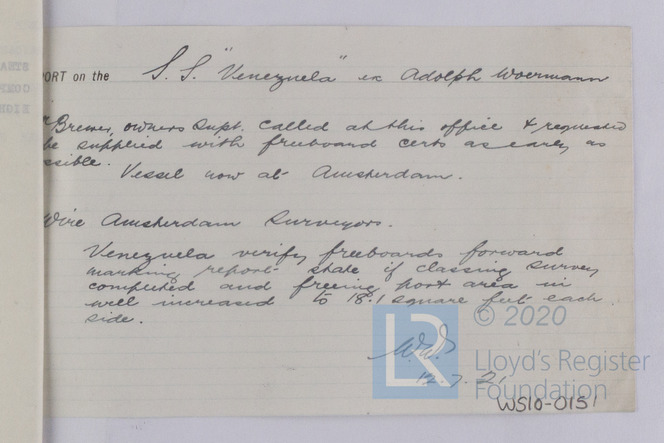 ORT on the S.S. "Venezuela" ex Adolph Woermann
Brewer, owners supt. called at this office & requested
be supplied with freeboard certs as early as
ssible. Vessel now at Amsterdam.
Wire Amsterdam Surveyors.
Venezuela verify freeboards forward
marking report state if classing survey
completed and freeing port area in
well increased to 18.1 square feet each
side.
12.7.21
© 2020
LR
Lloyd's Register
Foundation
WS10-0151